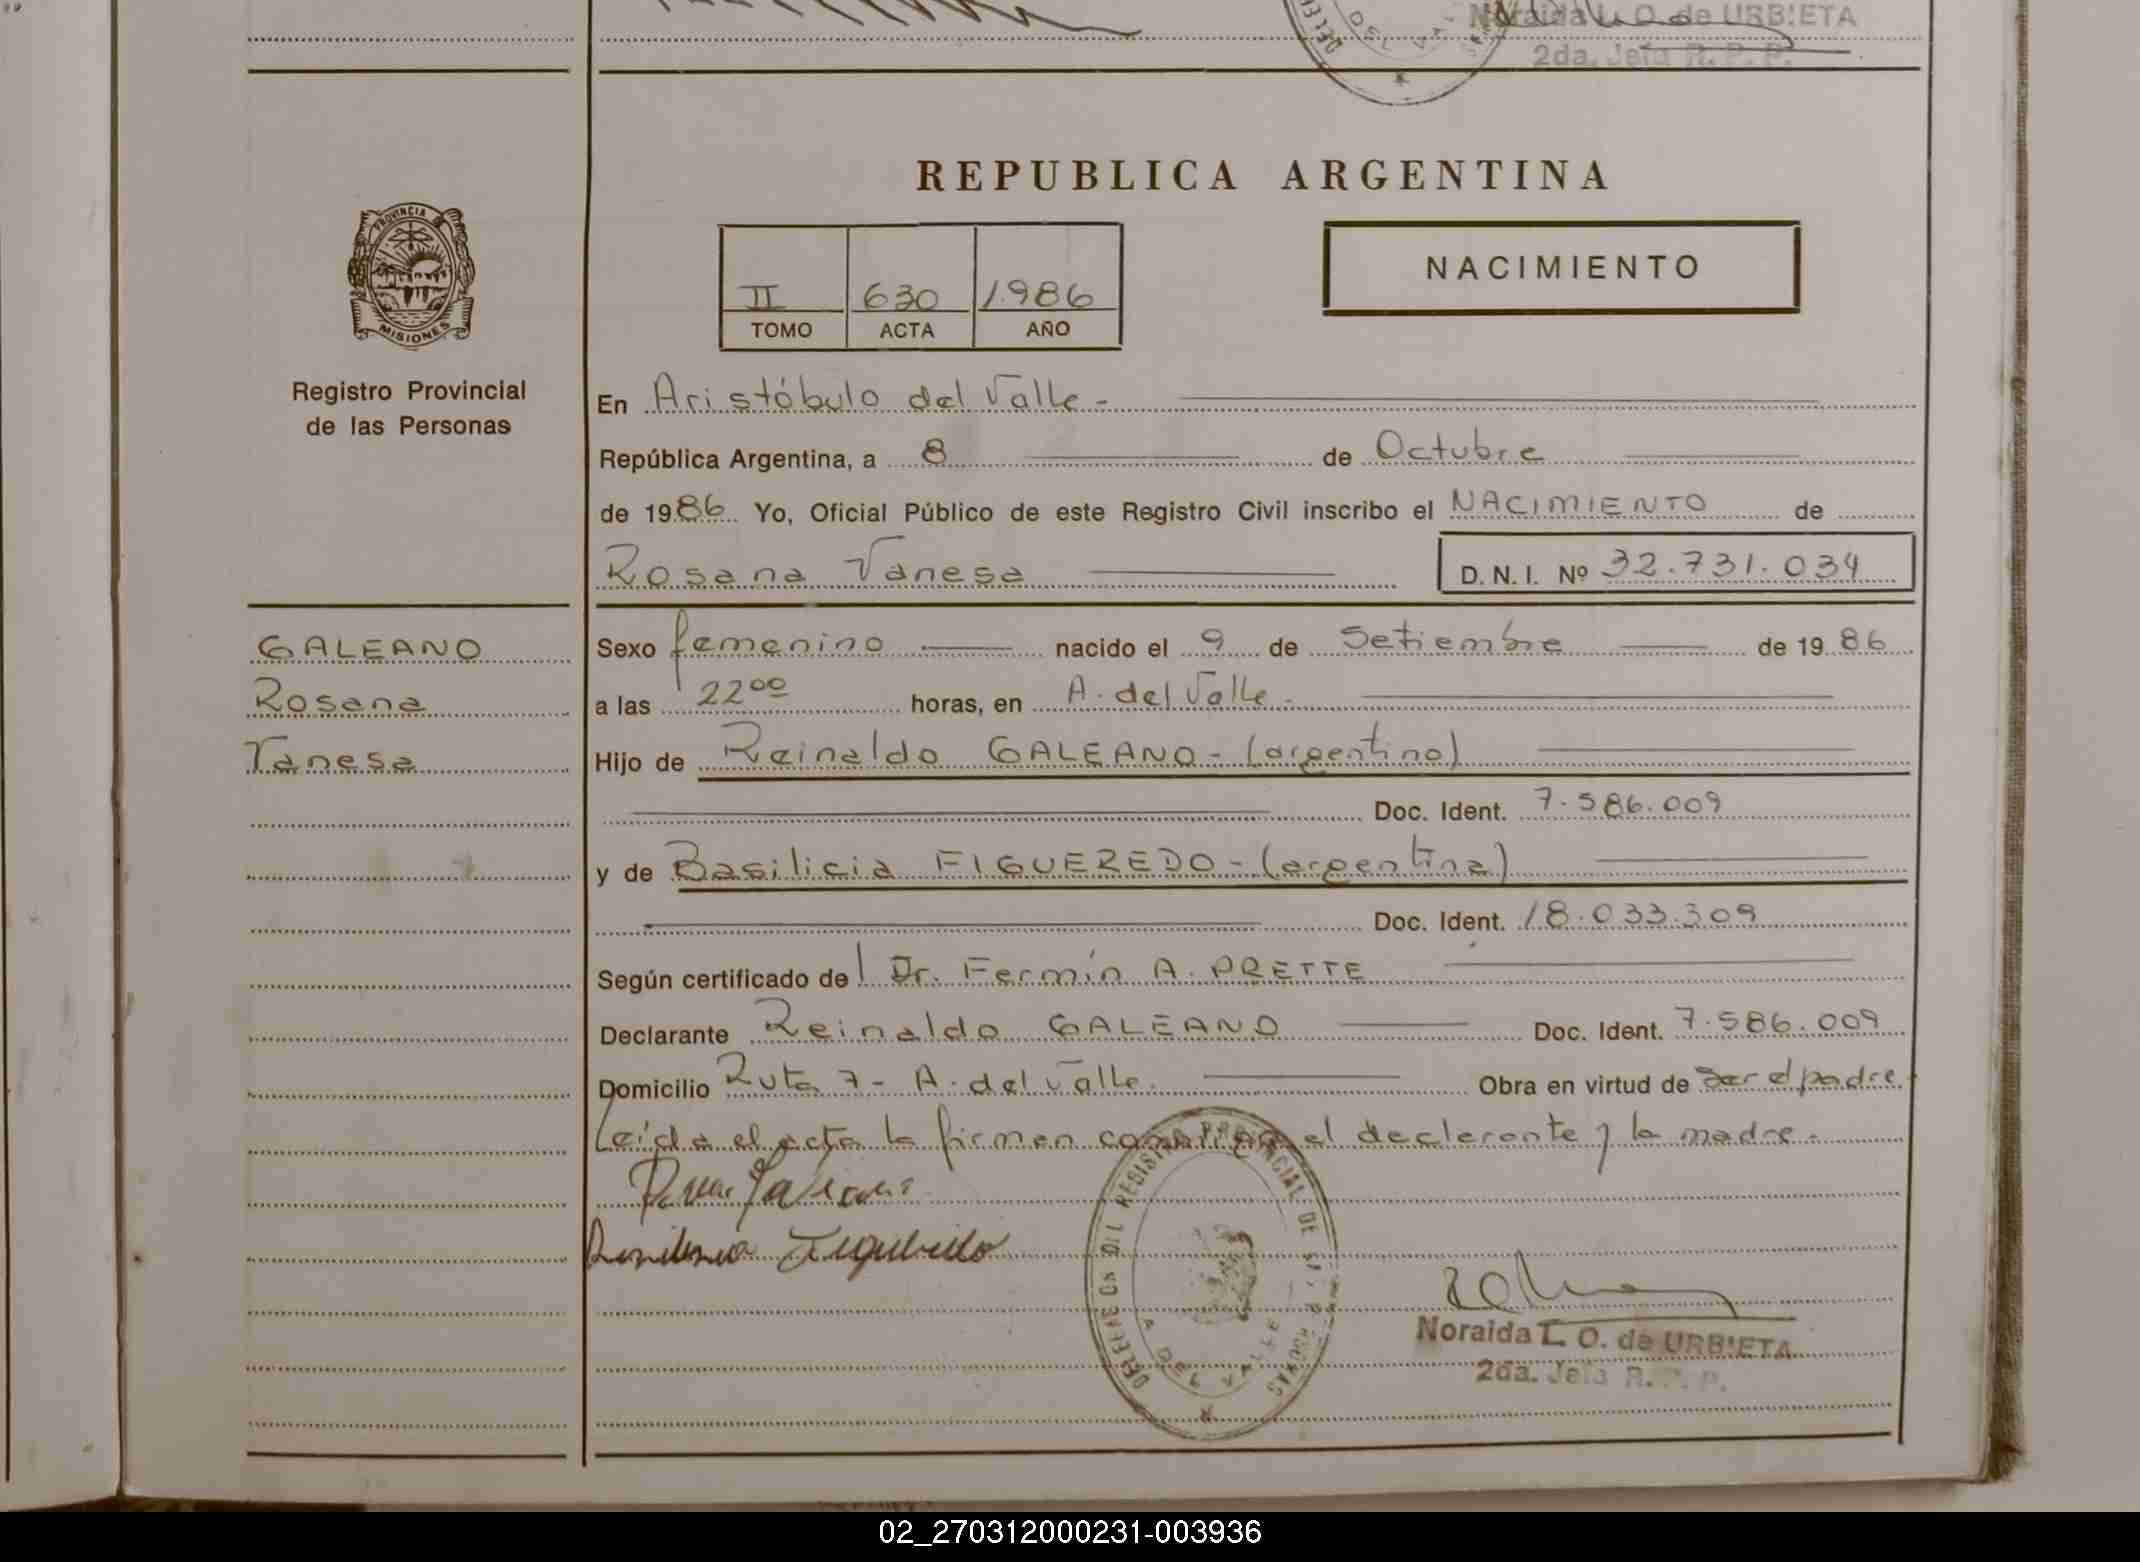 Noraida L. O. de URBIETA
2da. Jefa R. P. P.
DEL VA
REPUBLICA ARGENTINA
PROVINCIA
MISIONES
NACIMIENTO
II 630 1.986
TOMO ACTA AÑO
Registro Provincial
de las Personas
En Aristóbulo del Valle.-
República Argentina, a 8 de Octubre
de 1986 Yo, Oficial Público de este Registro Civil inscribo el NACIMIENTO de
Rosana Vanesa D. N. I. Nº 32.731.034
GALEANO
Rosana
Vanesa
Sexo femenino nacido el 9 de Setiembre de 1986
a las 22ºº horas, en A. del Valle.-
Hijo de Reinaldo GALEANO - (argentino)
Doc. Ident. 7.586.009
y de Basilicia FIGUEREDO - (argentina)
Doc. Ident. 18.033.309
Según certificado del Dr. Fermín A. PRETTE
Declarante Reinaldo GALEANO Doc. Ident. 7.586.009
Domicilio Ruta 7 - A. del Valle. Obra en virtud de ser el padre.
Leída el acta la firman conmigo el declarante y la madre.-
DELEGACION DEL REGISTRO PROVINCIAL DE LAS PERSONAS
A. DEL VALLE
Noraida L. O. de URBIETA
2da. Jefa R. P. P.
02_270312000231-003936